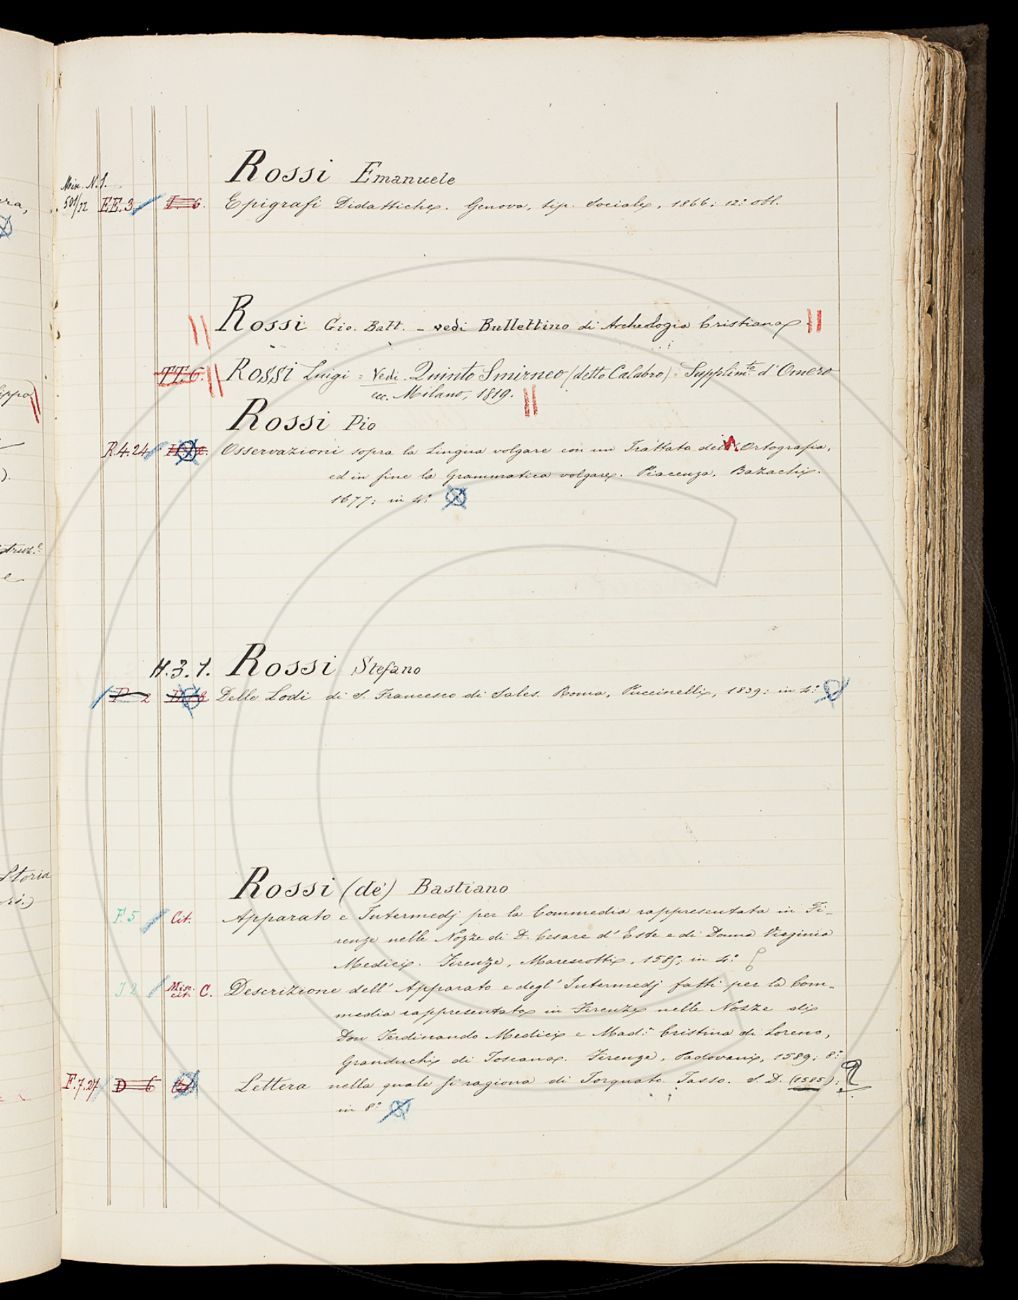 Rossi Emanuele
Misc. N. 1.
EE. 3 I=6. Epigrafi Didattiche. Genova, tip. Sociale, 1866; 12.° obl.
Rossi Gio. Batt. - vedi Bullettino di Archeologia Cristiana
TT. 6. Rossi Luigi = Vedi Quinto Smirneo (detto Calabro) = Supplim.to d'Omero
ec. Milano, 1819.
Rossi Pio
R.4.24 Osservazioni sopra la Lingua volgare con un Trattato dell'Ortografia,
ed in fine la Grammatica volgare. Piacenza, Bazachi.
1677; in 4.°
H.3.1. Rossi Stefano
Delle Lodi di S. Francesco di Sales. Roma, Puccinelli, 1839; in 4.°
Rossi (de') Bastiano
F.5 Cit. Apparato e Intermedj per la Commedia rappresentata in Fi-
renze nelle Nozze di D. Cesare d'Este e di Donna Virginia
Medici. Firenze, Marescotti, 1585; in 4.°
Misc. cit. C. Descrizione dell'Apparato e degl'Intermedj fatti per la Com-
media rappresentata in Firenze nelle Nozze di
Don Ferdinando Medici e Mad.a Cristina di Loreno,
Granduchi di Toscana. Firenze, Padovani, 1589; 8.°
F.7.27 D 6 Lettera nella quale si ragiona di Torquato Tasso. S. D. (1585);
in 8.°